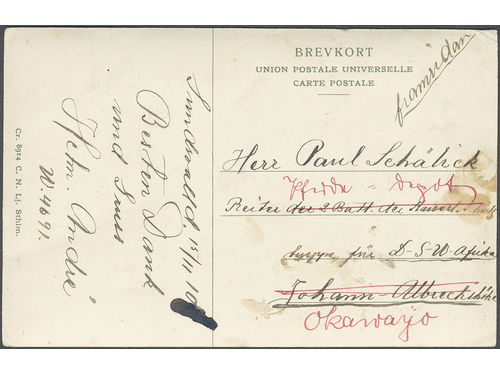 BREVKORT
UNION POSTALE UNIVERSELLE
CARTE POSTALE
framsidan
Sundsvall d. 15/11 10
Besten Dank
und Gruss
Hjelm. André
W. 4691.
Cr. 8914 C. N. Lj. Sthlm.
Herr Paul Schälick
Pferde-depot
Reiter der 2 Batt. der Kaiserl.
truppe für D-S-W-Afrika
Johann-Albrechtshöhe
Okawayo